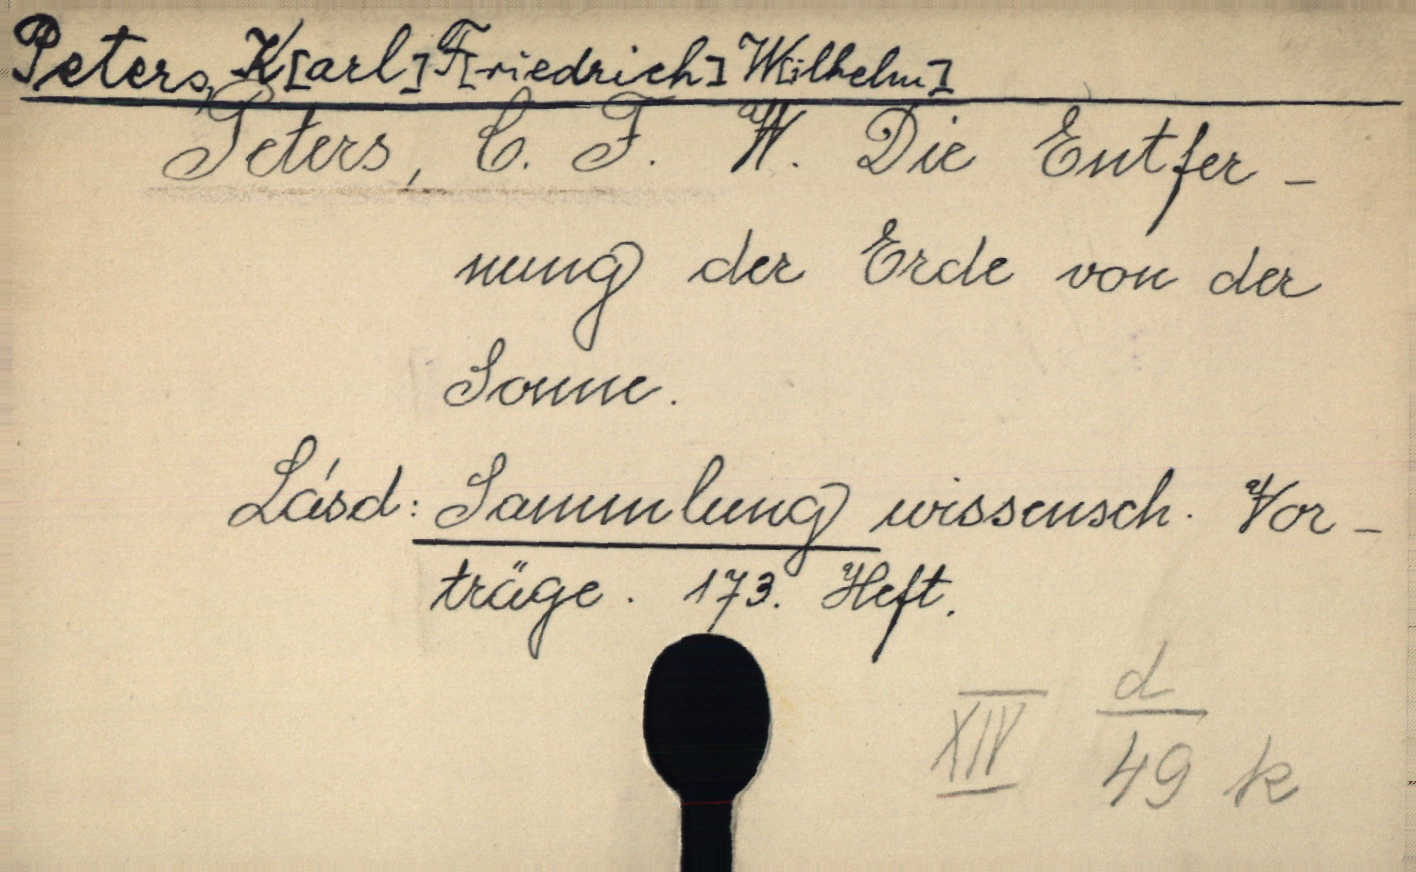 Peters, K[arl] F[riedrich] W[ilhelm]
Peters, C. F. W. Die Entfer-
nung der Erde von der
Sonne.
Lásd: Sammlung wissensch. Vor-
träge. 173. Heft.
d
XIV 49 k